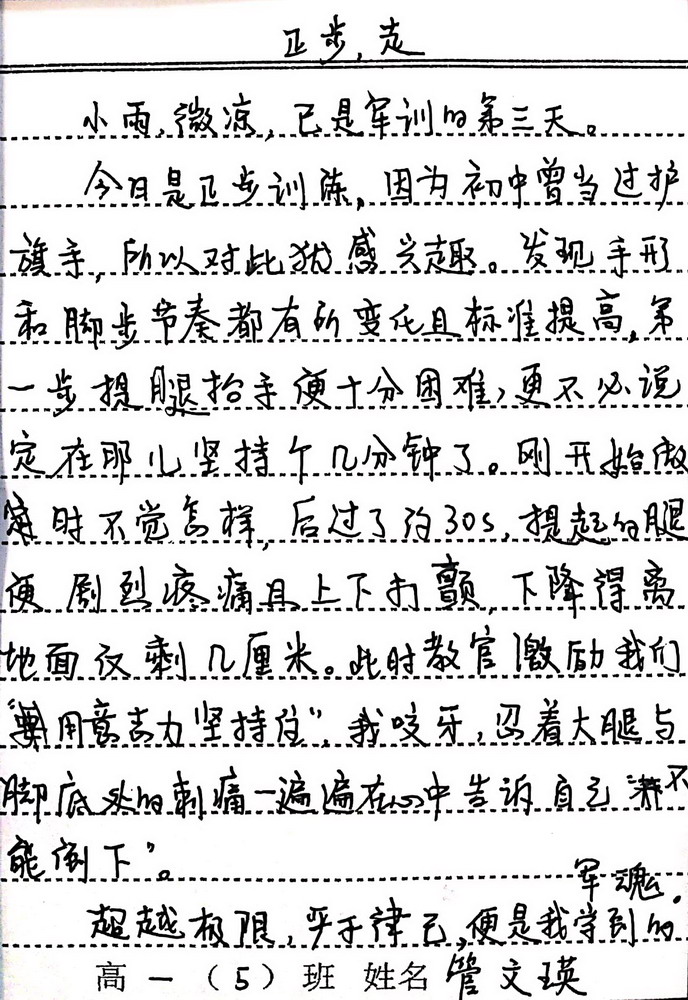 正步,走
小雨,微凉,已是军训的第三天。
今日是正步训练,因为初中曾当过护
旗手,所以对此犹感兴趣。发现手形
和脚步节奏都有所变化且标准提高,第
一步提腿抬手便十分困难,更不必说
定在那儿坚持个几分钟了。刚开始做
时不觉怎样,后过了约30s,提起的腿
便剧烈疼痛且上下打颤,下降得离
地面仅剩几厘米。此时教官激励我们
"要用意志力坚持住",我咬牙,忍着大腿与
脚底处的刺痛一遍遍在心中告诉自己"不
能倒下"。
军魂。
超越极限,严于律己,便是我学到的
高一(5)班 姓名 管文瑛